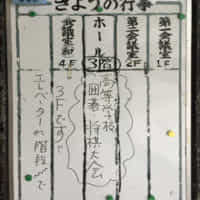 きょうの行事
第一会議室 1F
第二会議室 2F
ホール 3階
高等学校
囲碁 将棋大会
会議室和 4F
3Fまで
エレベーターか階段で